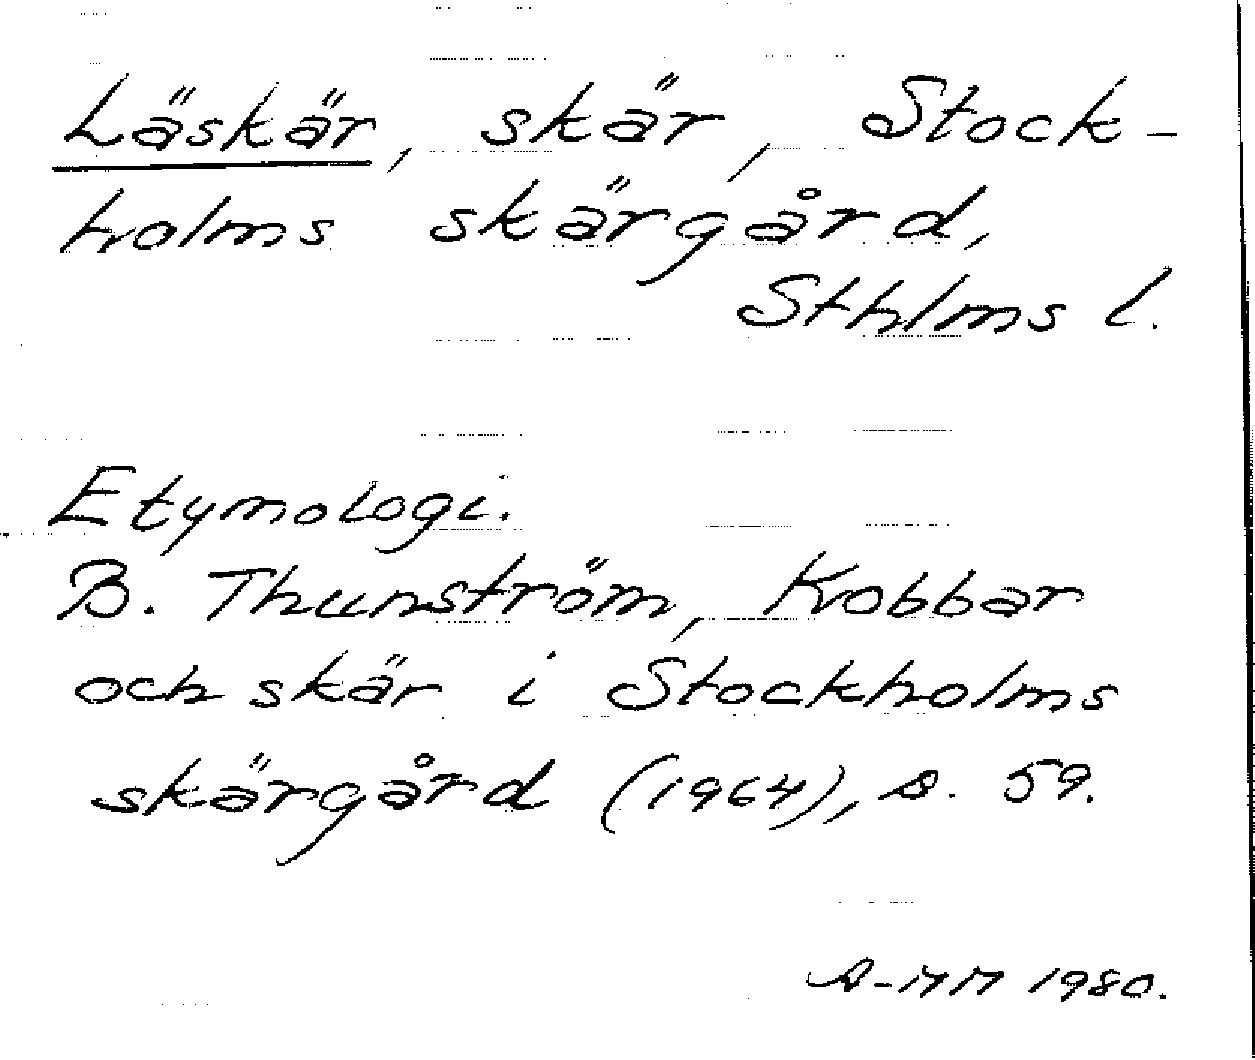 Läskär, skär, Stock-
holms skärgård,
Sthlms l.
Etymologi.
B. Thunström, Kobbar
och skär i Stockholms
skärgård (1964), s. 59.
A-MM 1980.